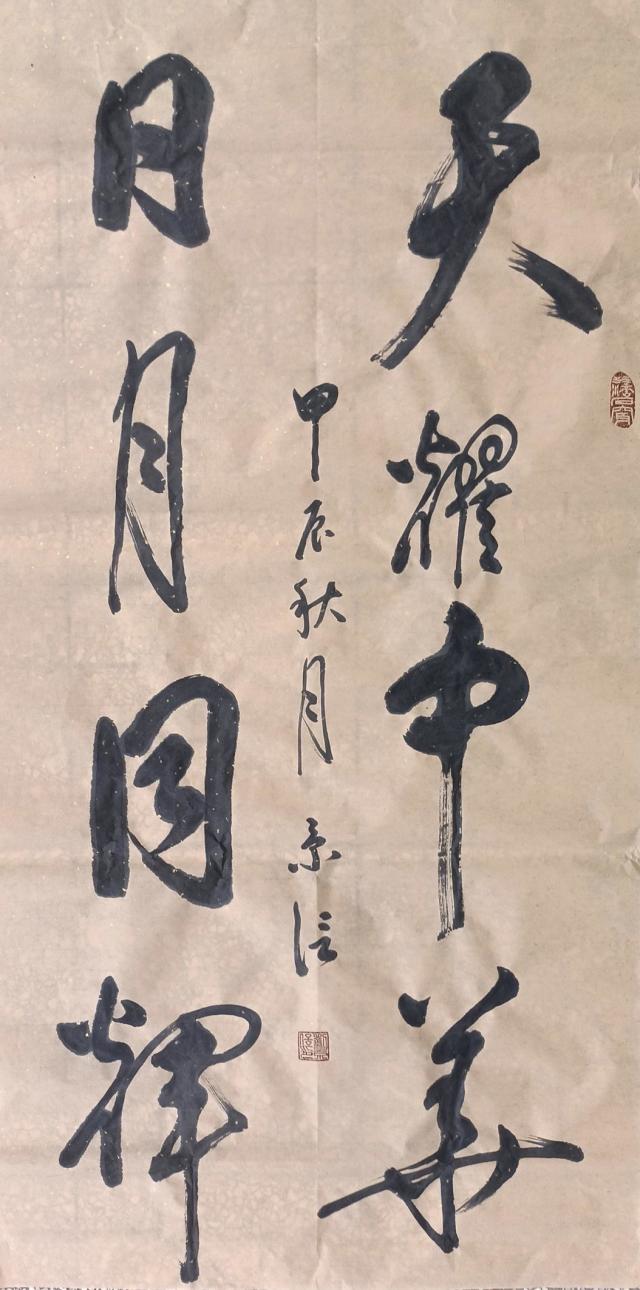 天耀中华
日月同辉
甲辰秋月 景信